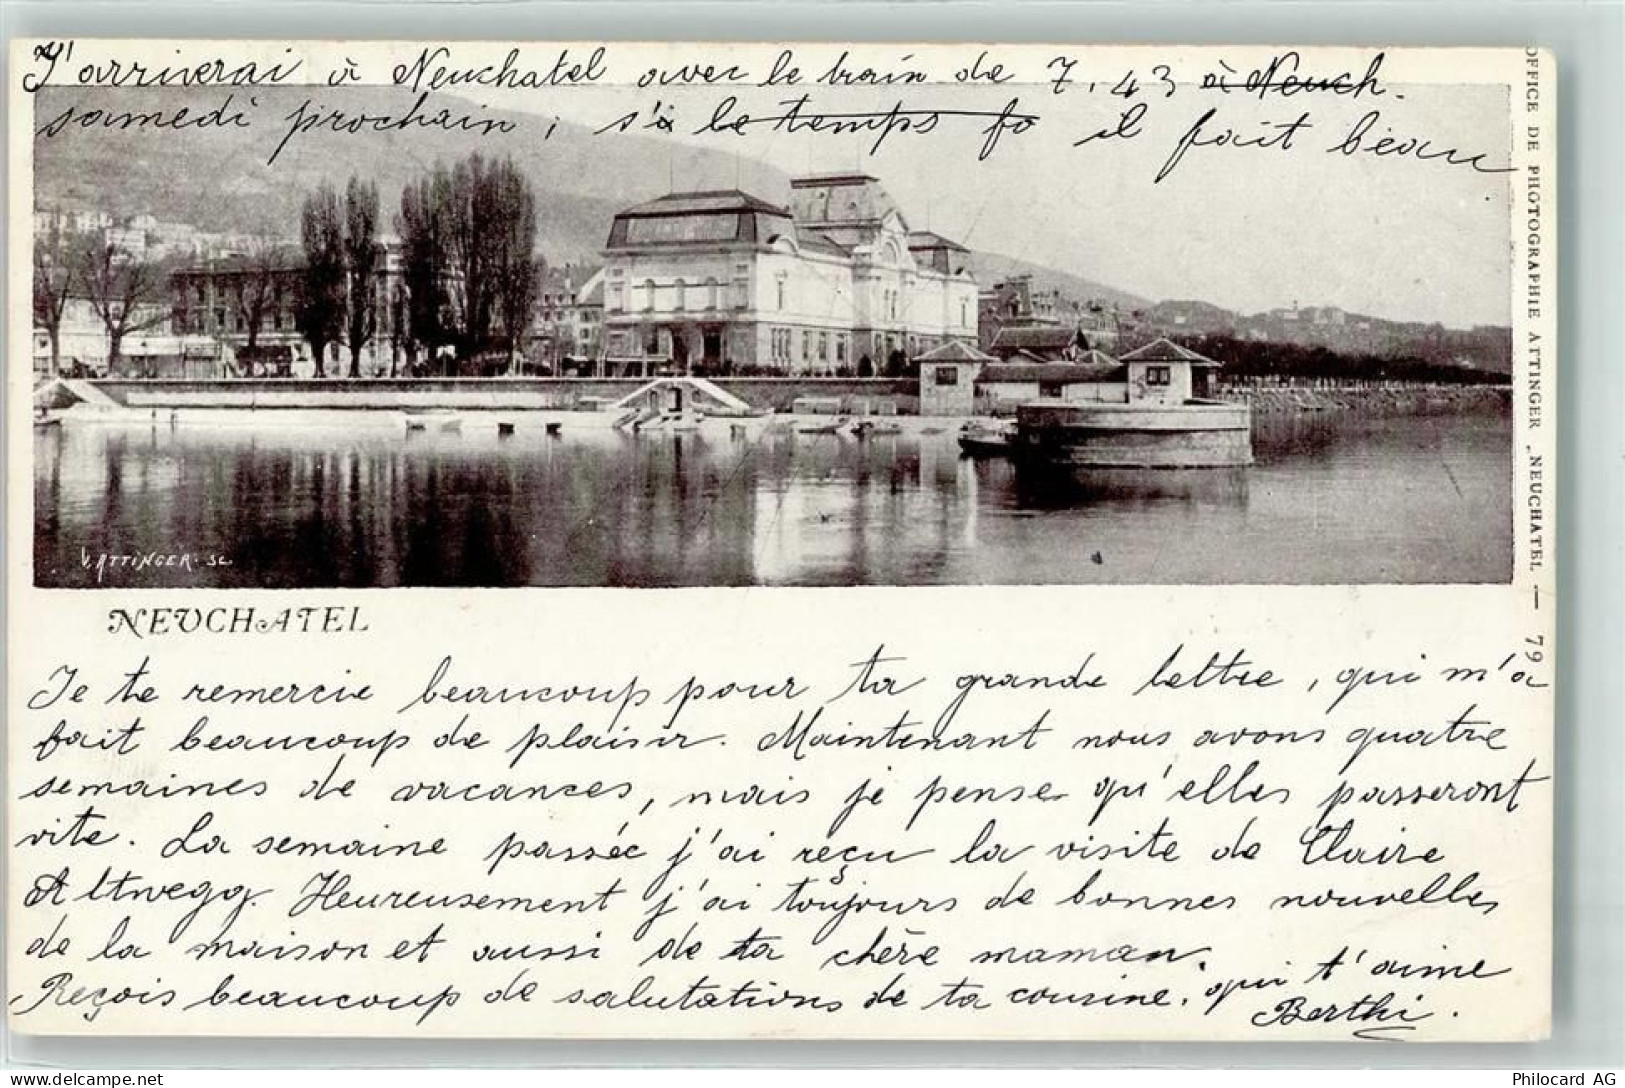 J'arriverai à Neuchatel avec le train de 7.43 à Neuch.
samedi prochain; s'i le temps fo il fait beau
OFFICE DE PHOTOGRAPHIE ATTINGER, NEUCHATEL — 79
V. ATTINGER. SC.
NEUCHATEL
Je te remercie beaucoup pour ta grande lettre, qui m'a
fait beaucoup de plaisir. Maintenant nous avons quatre
semaines de vacances, mais je pense qu'elles passeront
vite. La semaine passée j'ai reçu la visite de Claire
Altwegg. Heureusement j'ai toujours de bonnes nouvelles
de la maison et aussi de ta chère maman.
Reçois beaucoup de salutations de ta cousine. qui t'aime
Berthi.
Philocard AG
delcampe.net